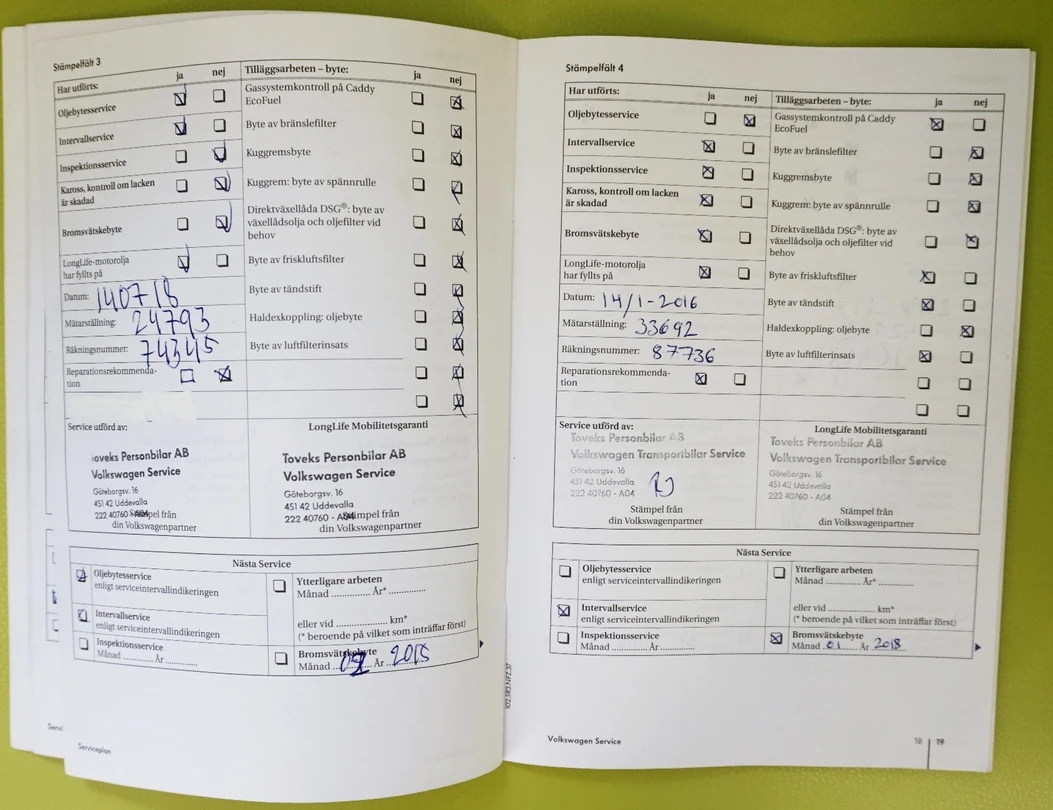 Stämpelfält 3
Har utförts: ja nej
Oljebytesservice
Intervallservice
Inspektionsservice
Kaross, kontroll om lacken
är skadad
Bromsvätskebyte
LongLife-motorolja
har fyllts på
Datum: 140718
Mätarställning: 24793
Räkningsnummer: 74345
Reparationsrekommenda-
tion
Tilläggsarbeten – byte: ja nej
Gassystemkontroll på Caddy
EcoFuel
Byte av bränslefilter
Kuggremsbyte
Kuggrem: byte av spännrulle
Direktväxellåda DSG®: byte av
växellådsolja och oljefilter vid
behov
Byte av friskluftsfilter
Byte av tändstift
Haldexkoppling: oljebyte
Byte av luftfilterinsats
Service utförd av:
oveks Personbilar AB
Volkswagen Service
Göteborgsv. 16
451 42 Uddevalla
222 40760 - A04
Stämpel från
din Volkswagenpartner
LongLife Mobilitetsgaranti
Toveks Personbilar AB
Volkswagen Service
Göteborgsv. 16
451 42 Uddevalla
222 40760 - A04
Stämpel från
din Volkswagenpartner
Nästa Service
Oljebytesservice
enligt serviceintervallindikeringen
Intervallservice
enligt serviceintervallindikeringen
Inspektionsservice
Månad ............ År ............
Ytterligare arbeten
Månad ............ År* ............
eller vid ............ km*
(* beroende på vilket som inträffar först)
Bromsvätskebyte
Månad År 2015
Servi
Serviceplan
Stämpelfält 4
Har utförts: ja nej
Oljebytesservice
Intervallservice
Inspektionsservice
Kaross, kontroll om lacken
är skadad
Bromsvätskebyte
LongLife-motorolja
har fyllts på
Datum: 14/1-2016
Mätarställning: 33692
Räkningsnummer: 87736
Reparationsrekommenda-
tion
Tilläggsarbeten – byte: ja nej
Gassystemkontroll på Caddy
EcoFuel
Byte av bränslefilter
Kuggremsbyte
Kuggrem: byte av spännrulle
Direktväxellåda DSG®: byte av
växellådsolja och oljefilter vid
behov
Byte av friskluftsfilter
Byte av tändstift
Haldexkoppling: oljebyte
Byte av luftfilterinsats
Service utförd av:
Toveks Personbilar AB
Volkswagen Transportbilar Service
Göteborgsv. 16
451 42 Uddevalla
222 40760 - A04
Stämpel från
din Volkswagenpartner
LongLife Mobilitetsgaranti
Toveks Personbilar AB
Volkswagen Transportbilar Service
Göteborgsv. 16
451 42 Uddevalla
222 40760 - A04
Stämpel från
din Volkswagenpartner
Nästa Service
Oljebytesservice
enligt serviceintervallindikeringen
Intervallservice
enligt serviceintervallindikeringen
Inspektionsservice
Månad ............ År ............
Ytterligare arbeten
Månad ............ År* ............
eller vid ............ km*
(* beroende på vilket som inträffar först)
Bromsvätskebyte
Månad 01 År 2018
102.5R3.NFZ.37
Volkswagen Service
18 | 19